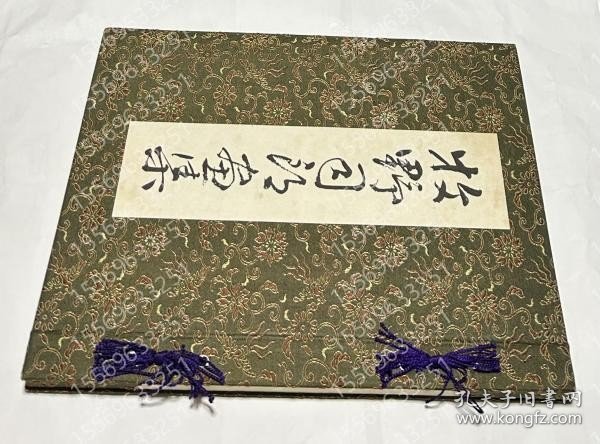 牧野司郎畫集
15569633251
孔夫子旧書网
www.kongfz.com